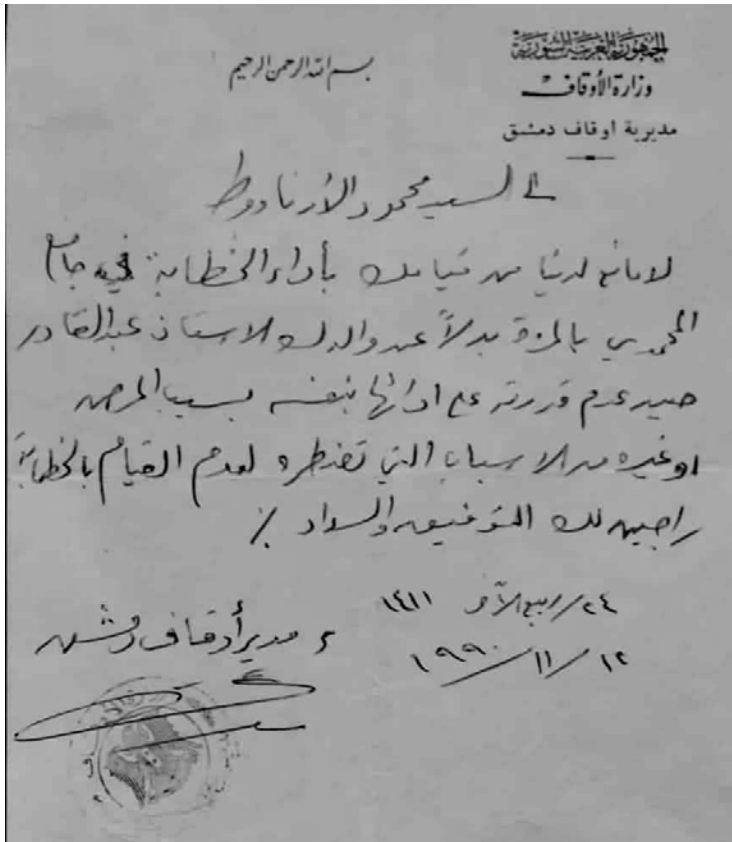 الجمهورية العربية السورية
وزارة الأوقاف
مديرية اوقاف دمشق
بسم الله الرحمن الرحيم
الى السيد محمود الأرناؤوط
لا مانع لدينا من قيامك بأداء الخطابة في جامع
المحمدي بالمزة بدلاً عن والدك الاستاذ عبد القادر
حين عدم قدرته على ادائها بنفسه بسبب المرض
او غيره من الاسباب التي تضطره لعدم القيام بالخطابة
راجين لك التوفيق والسداد ٪
٢٤/ربيع الآخر ١٤١١
١٢/١١/١٩٩٠
مدير أوقاف دمشق